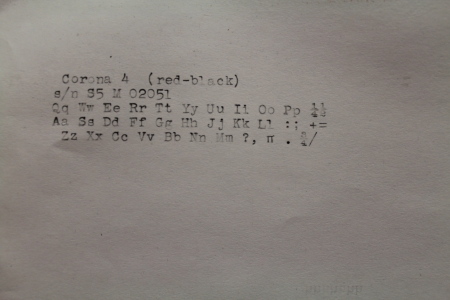 Corona 4 (red-black)
s/n S5 M 02051
Qq Ww Ee Rr Tt Yy Uu Ii Oo Pp ¼½
Aa Ss Dd Ff Gg Hh Jj Kk Ll :; +=
Zz Xx Cc Vv Bb Nn Mm ?, π . ¾/